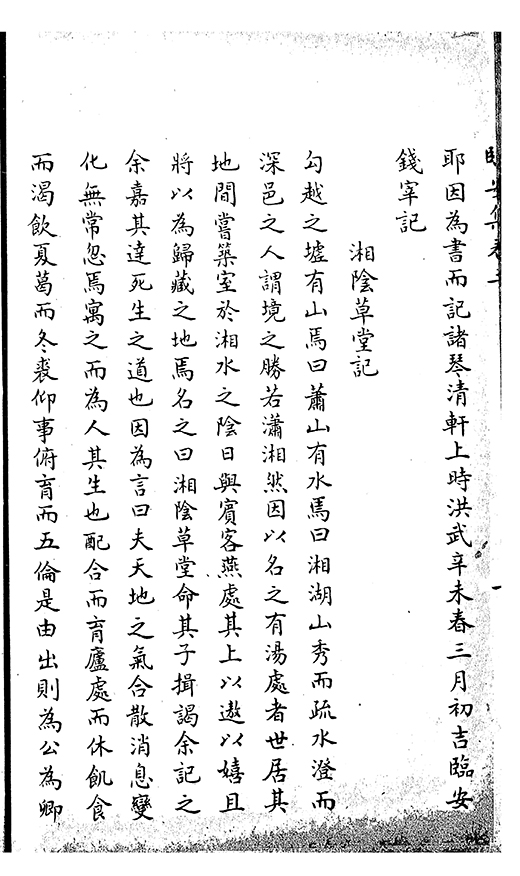 臨安集卷五
耶因為書而記諸琴清軒上時洪武辛未春三月初吉臨安
錢宰記
湘陰草堂記
勾越之墟有山焉曰蕭山有水焉曰湘湖山秀而疏水澄而
深邑之人謂境之勝若瀟湘然因以名之有湯處者世居其
地間嘗築室於湘水之陰日與賓客燕處其上以遨以嬉且
將以為歸藏之地焉名之曰湘陰草堂命其子揖謁余記之
余嘉其達死生之道也因為言曰夫天地之氣合散消息變
化無常忽焉寓之而為人其生也配合而育廬處而休飢食
而渴飲夏葛而冬裘仰事俯育而五倫是由出則為公為卿